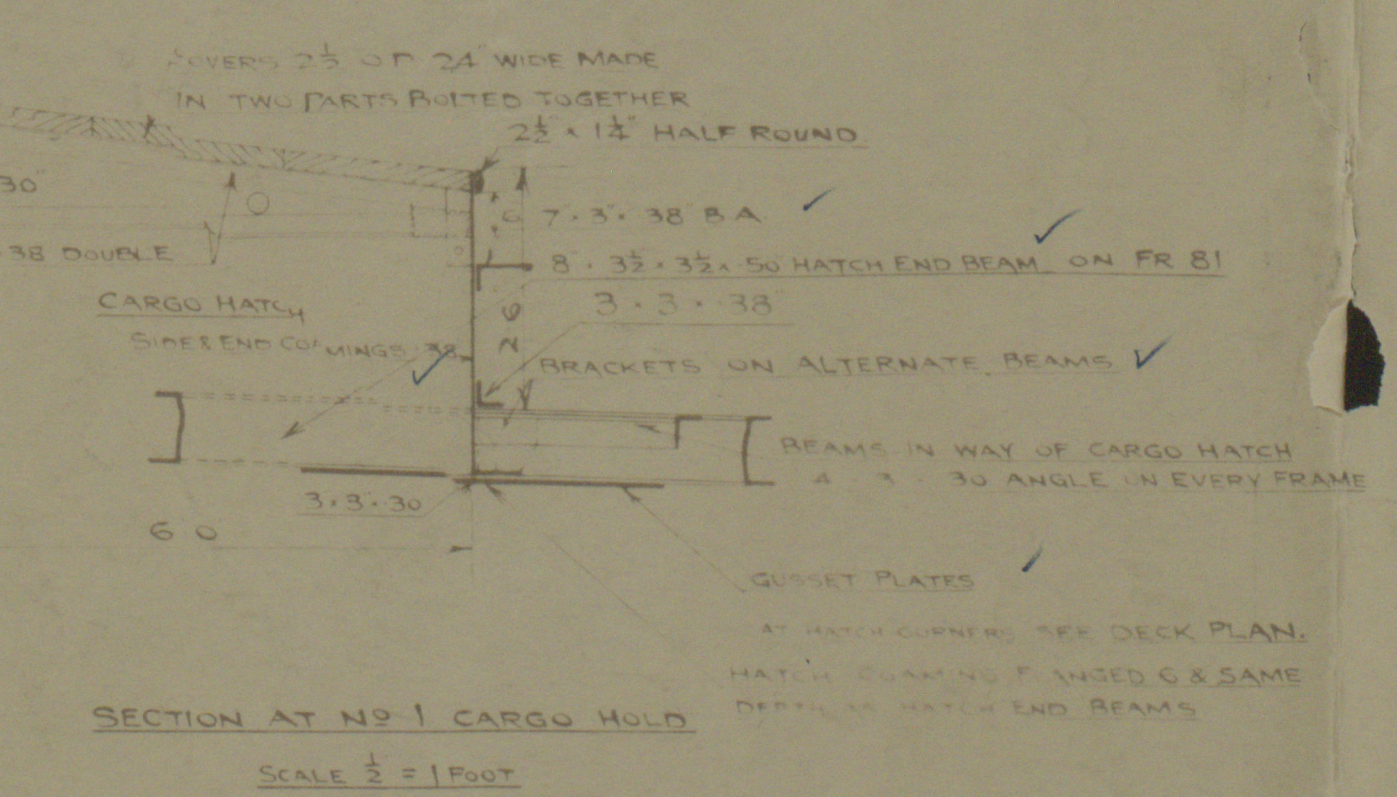 COVERS 2½ OF 24" WIDE MADE
IN TWO PARTS BOLTED TOGETHER
2½" × 1¼" HALF ROUND
30"
38 DOUBLE
6
7" · 3" · 38 BA
8 · 3½ × 3½ × 50 HATCH END BEAM ON FR 81
3 · 3 · 38"
CARGO HATCH
SIDE & END COAMINGS 38
2 6
BRACKETS ON ALTERNATE BEAMS
BEAMS IN WAY OF CARGO HATCH
4 · 3 · 30 ANGLE ON EVERY FRAME
3 · 3" · 30
6 0
GUSSET PLATES
AT HATCH CORNERS SEE DECK PLAN.
HATCH COAMING FLANGED 6 & SAME
DEPTH AS HATCH END BEAMS
SECTION AT Nº 1 CARGO HOLD
SCALE ½ = 1 FOOT